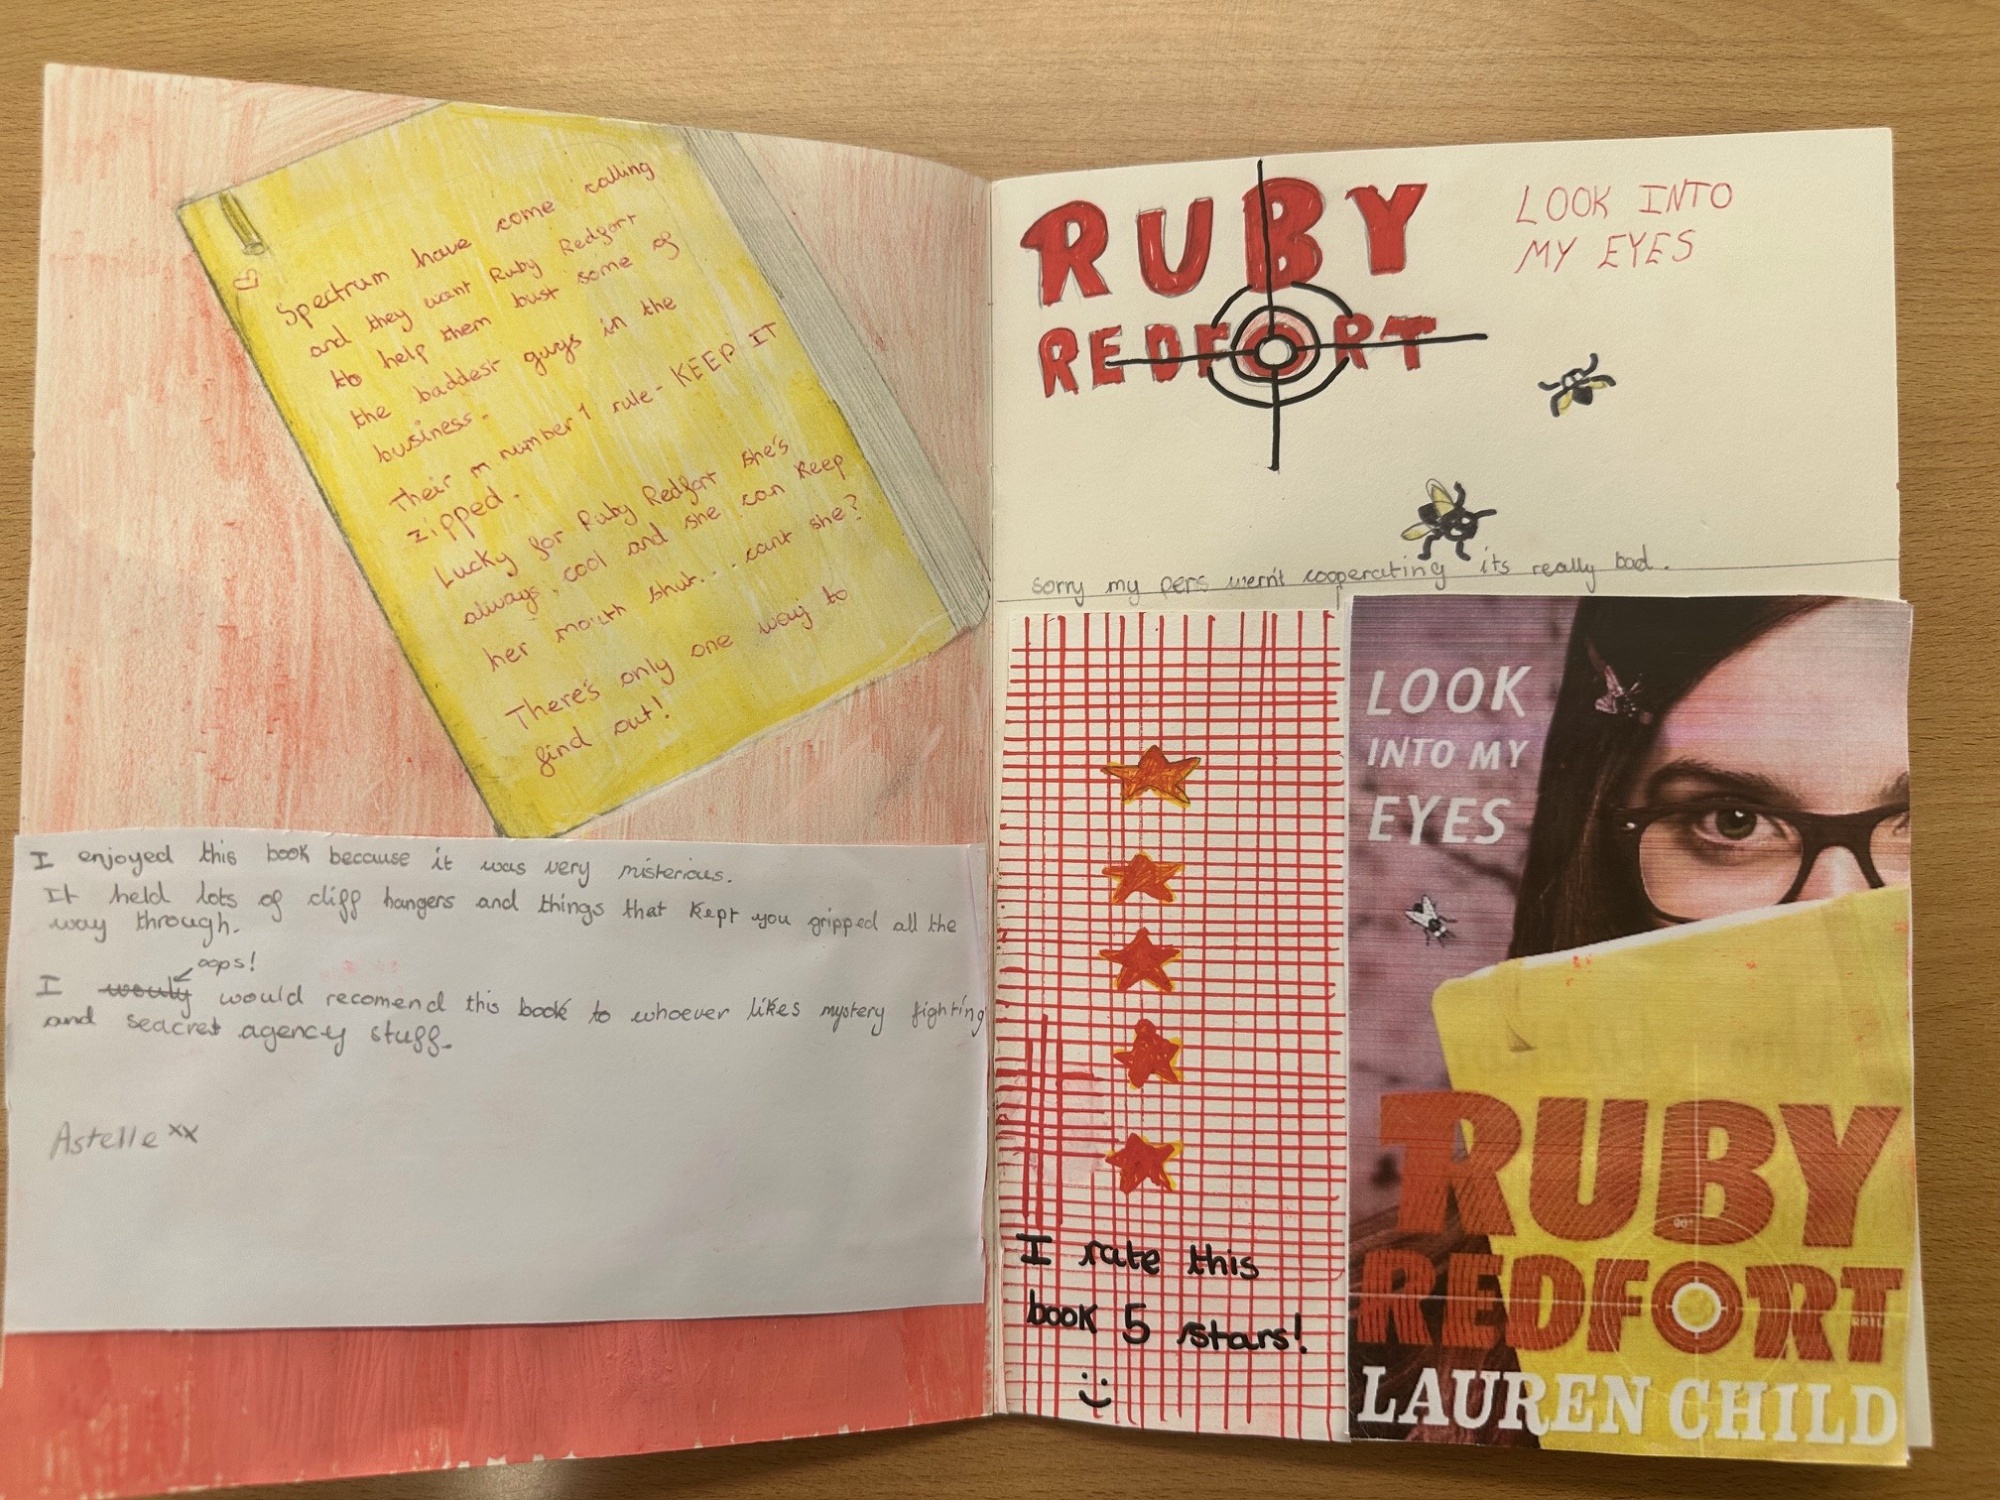 Spectrum have come calling
and they want Ruby Redfort
to help them bust some of
the baddest guys in the
business.
Their m number 1 rule - KEEP IT
zipped.
Lucky for Ruby Redfort she's
always, cool and she can keep
her mouth shut... cant she?
There's only one way to
find out!
I enjoyed this book because it was very misterious.
It held lots of cliff hangers and things that kept you gripped all the
way through.
oops!
I wouly would recomend this book to whoever likes mystery fighting
and seacret agency stuff.
Astelle xx
RUBY
REDFORT
LOOK INTO
MY EYES
sorry my pens wern't cooperating its really bad.
I rate this
book 5 stars!
LOOK
INTO MY
EYES
RUBY
REDFORT
LAUREN CHILD